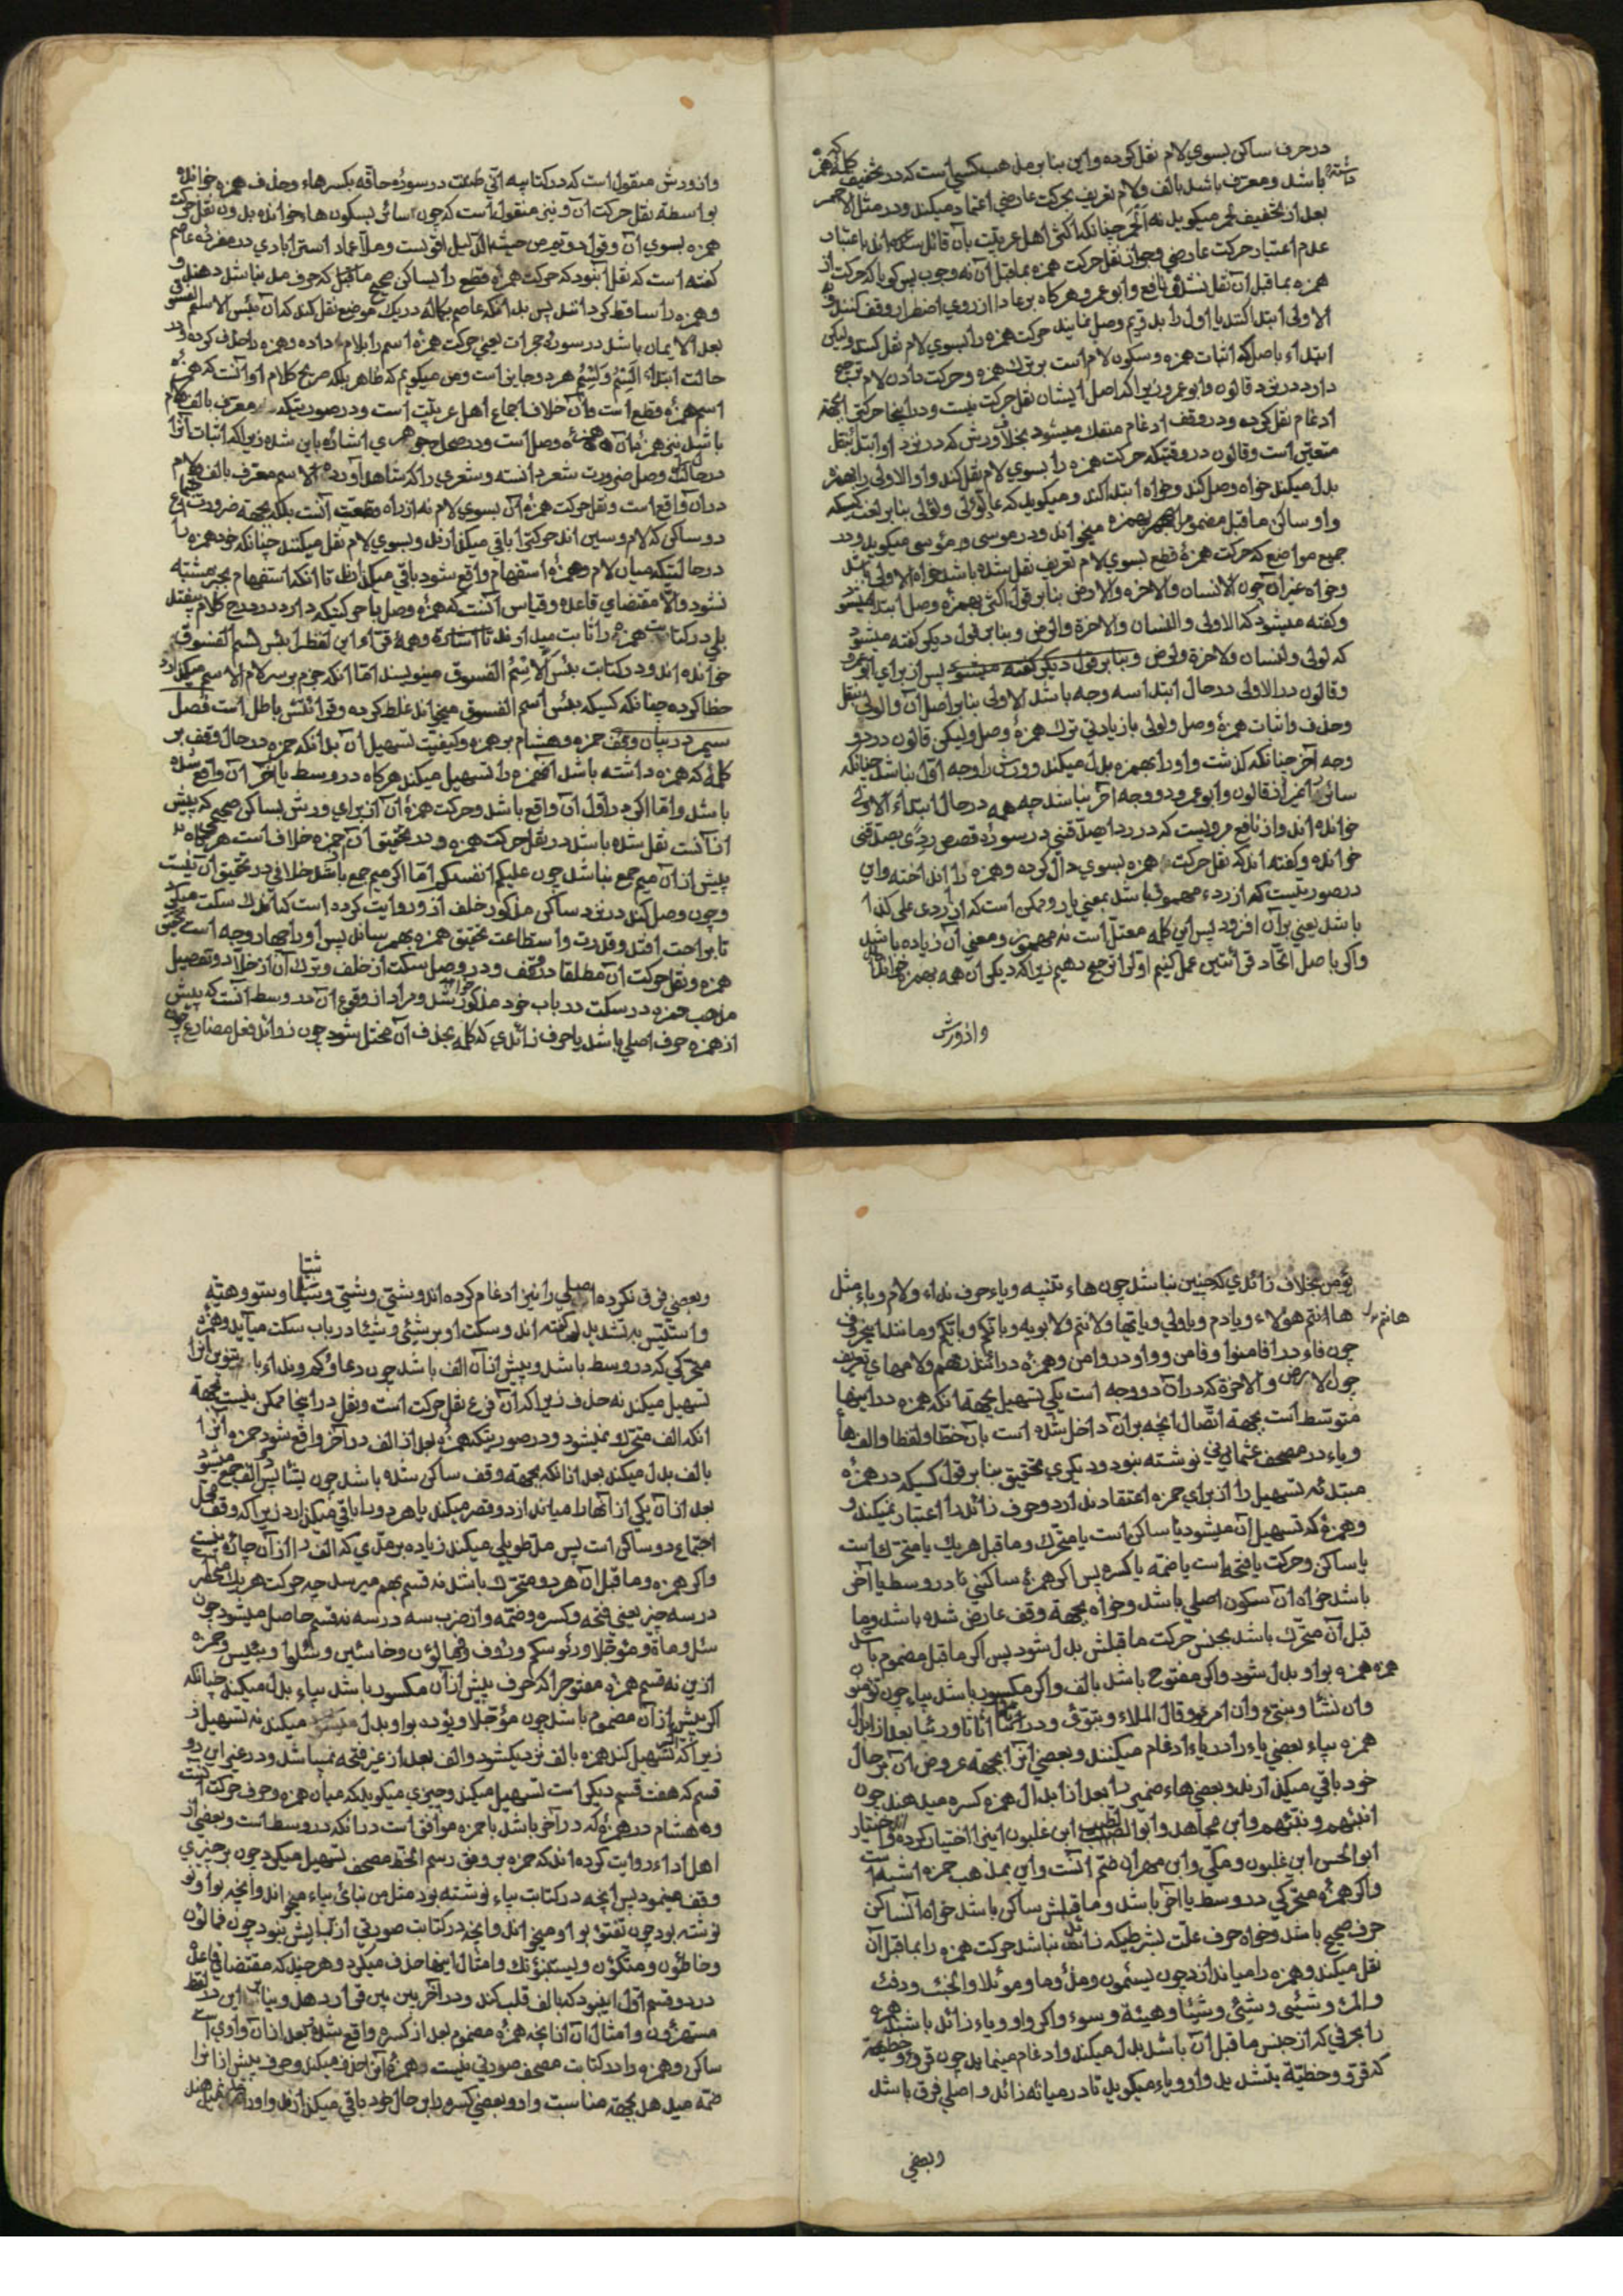 در حرف ساکن بسوي لام نقل کرده واین بنابر مذهب کسي است که در تخفیف کلمهٔ که همزه
داشته باشد ومعرف باشد بالف ولام تعریف بحرکت عارضي اعتماد میکند ودر مثل الاحمر
بعد از تخفیف لحمر میکوید نه الحمر چنانکه اکثر اهل عربیت بآن قائل شده اند باعتبار
عدم اعتبار حرکت عارضي وجواز نقل حرکت همزه بماقبل آن نه وجوب پس کویا که حرکت از
همزه بماقبل آن نقل نشده ونافع وابو عمرو هر کاه بر عادا از روي اضطرار وقف کنند وبه
الاولی ابتدا کنند یا اول را بدو تیم وصل نمایند حرکت همزه را بسوي لام نقل کنند ولیکن
ابتداء باصل که اثبات همزه وسکون لام است بر ترك همزه وحرکت دادن لام ترجیح
دارد در نزد قالون وابو عمرو زیرا که اصل ایشان نقل حرکت نیست ودر اینجا حرکت بجهة
ادغام نقل کرده ودر وقف ادغام منفك میشود بخلاف ورش که در نزد او ابتدا بنقل
متعین است وقالون در وقتیکه حرکت همزه را بسوي لام نقل کند واو الاولی را بهمزه
بدل میکند خواه وصل کند وخواه ابتدا کند ومیکوید که عادلؤلی ولؤلی بنابر لغت کسیکه
واو ساکن ماقبل مضموم را بهمزه میخواند ودر موسی مؤسی میکوید ودر
جمیع مواضع که حرکت همزهٔ قطع بسوي لام تعریف نقل شده باشد خواه الاولی باشد
وخواه غیر آن چون الانسان والاخره والارض بنابر قول اکثر بهمزهٔ وصل ابتدا میشود
وکفته میشود که الاولی والنسان والاخرة والرض وبنابر قول دیکر کفته میشود
که لولی ولنسان ولاخرة ولرض وبنابر قول دیکر کفته میشود پس از براي ابو عمرو
وقالون در الاولی در حال ابتدا سه وجه باشد الاولی بنابر اصل آن والولی بنقل
وحذف واثبات همزهٔ وصل ولولی بازیادتي ترك همزهٔ وصل ولیکن قالون در دو
وجه آخر چنانکه کذشت واو را بهمزه بدل میکند وورش را وجه اول نباشد چنانکه
سائر را غیر از قالون وابو عمرو دو وجه آخر نباشد چه همه در حال ابتداء الاولی
خوانده اند واز نافع مرویست که در ردا یصدقني در سورهٔ قصص ردي یصدقني
خوانده وکفته اند که نقل حرکت همزه بسوي دال کرده وهمزه را انداخته واین
در صورتیست که از ردء مهموز باشد بمعني یار وممکن است که از اردی علی کذا
باشد یعني بر آن افزود پس این کلمه معتل است نه مهموز ومعني آن زیاده باشد
واکر باصل اتحاد قرائتین عمل کنیم اولی را ترجیح دهیم زیرا که دیکران همه بهمزه خوانده اند
وازورش
وازورش منقول است که در کتابیه اني ظننت در سورهٔ حاقه بکسر هاء وحذف همزه خوانده
بواسطهٔ نقل حرکت آن ونیز منقول است که چون سائر بسکون هاء خوانده بدون نقل حرکت
همزه بسوي آن وقول دویم من حیث الدلیل اقویست وملا عماد استرابادي در مفردهٔ عاصم
کفته است که نقل آنبود که حرکت همزهٔ قطع را بساکن صحیح ماقبل که حرف مد نباشد دهند و
وهمزه را ساقط کردانند پس بدانکه عاصم بکماله در یك موضع نقل کند که آن بئس الاسم الفسوق
بعد الایمان باشد در سورهٔ حجرات یعني حرکت همزهٔ اسم را بلام داده وهمزه را حذف کرده ودر
حالت ابتدا الِسم ولِسم هر دو جایز است ومن میکویم که ظاهر بلکه صریح کلام او آنست که همزهٔ
اسم همزهٔ قطع است وآن خلاف اجماع اهل عربیت است ودر صورتیکه معرف بالف ولام
باشد نیز همزهٔ آن همزهٔ وصل است ودر صحاح جوهري اشاره باین شده زیرا که اثبات آنرا
در حالت وصل ضرورت شعر دانسته وشعري را که شاهد آورده الاسم معرف بالف ولام
در آن واقع است ونقل حرکت همزهٔ آن بسوي لام نه از راه قطعیت آنست بلکه بجهة ضرورت اجتماع
دو ساکن که لام وسین اند حرکت آنرا باقي میکذارند وبسوي لام نقل میکنند چنانکه خود همزه را
در حالتیکه میان لام وهمزهٔ استفهام واقع شود باقي میکذارند تا آنکه استفهام بخبر مشتبه
نشود والا مقتضاي قاعده وقیاس آنست که همزهٔ وصل با حرکتیکه دارد در درج کلام بیفتد
بلي در کتابت همزه را ثابت میدارند تا اشارة وهمهٔ قراء این لفظ را بئس لسم الفسوق
خوانده اند ودر کتابت بئس الاسم الفسوق مینویسند اما آنکه جزم بر سر لام الاسم میکذارد
خطا کرده چنانکه کسیکه بئس اسم الفسوق میخواند غلط کرده وقرائتش باطل است فصل
سیم در بیان وقف حمزه وهشام بر همزه وکیفیت تسهیل آن بدانکه حمزه در حال وقف بر
کلمهٔ که همزه داشته باشد آنهمزه را تسهیل میکند هر کاه در وسط یا آخر آن واقع شده
باشد واما اکر در اول آن واقع باشد وحرکت همزهٔ آن از براي ورش بساکن صحیحي که پیش
از آنست نقل شده باشد در نقل حرکت همزه ودر تحقیق آن حمزه خلاف است هر کاه
پیش از آن میم جمع نباشد چون علیکم انفسکم اما اکر میم جمع باشد خلافي در تحقیق آن نیست
وچون وصل کند در نزد ساکن مذکور خلف از او روایت کرده است که اندك سکت میکند
تا براحت افتد وقدرت واستطاعت تحقیق همزه بهم رساند پس او را چهار وجه است تحقیق
همزه ونقل حرکت آن مطلقا در وقف ودر وصل سکت از خلف وترك آن از خلاد وتفصیل
مذهب حمزه در سکت در باب خود مذکور خواهد شد ومراد از وقوع آن در وسط آنست که پیش
از همزه حرف اصلي باشد یا حرف زائدي که کلمه بحذف آن مختل شود چون زوائد فعل مضارع چون
یؤمن بخلاف زائدي که چنین نباشد چون هاء تنبیه ویاء حرف نداء ولام وباء مثل
هاانتم هؤلاء ویادم ویاولي ویاایها ولانتم ولابویه وبانکم وبایکم ومانند اینحروف
چون فاء در افامنوا وفامن وواو در وامن وهمزه در اانذرتهم ولامهاي تعریف
چون الارض والاخرة که در آن دو وجه است یکي تسهیل بجهة آنکه همزه در اینها
متوسط است بجهة اتصال آنچه بر آن داخل شده است بآن خطا ولفظا والف ها
ویاء در مصحف عثماني نوشته نبود ودیکري تحقیق بنابر قول کسیکه در همزهٔ
مبتدئه تسهیل را از براي حمزه اعتقاد ندارد وحرف زائد را اعتبار نمیکند و
وهمزهٔ که تسهیل آن میشود یا ساکن است یا متحرك وماقبل هر یك یا متحرك است
یا ساکن وحرکت یا فتحه است یا ضمه یا کسره پس اکر همزهٔ ساکني در وسط یا آخر
باشد خواه آن سکون اصلي باشد وخواه بجهة وقف عارض شده باشد وما
قبل آن متحرك باشد بجنس حرکت ماقبلش بدل شود پس اکر ماقبل مضموم باشد
همزه بواو بدل شود واکر مفتوح باشد بالف واکر مکسور باشد بیاء چون تؤمنون
وان نشا وینبئ وان امرؤ وقال الملاء ویتوق ودر اثاثا ورئیا بعد از ابدال
همزه بیاء بعضي یاء را در یاء ادغام میکنند وبعضي آنرا بجهة عروض آن بر حال
خود باقي میکذارند وبعضي هاء ضمیر را بعد از ابدال همزه کسره میدهند چون
انبئهم ونبئهم وابن مجاهد وابو الطیب ابن غلبون اینرا اختیار کرده واختیار
ابو الحسن ابن غلبون ومکي وابن مهران ضم آنست واین بمذهب حمزه اشبه است
واکر همزهٔ متحرکي در وسط یا آخر باشد وماقبلش ساکن باشد خواه آنساکن
حرف صحیح باشد وخواه حرف علت بشرطیکه زائد نباشد حرکت همزه را بماقبل آن
نقل میکنند وهمزه را میاندازد چون یسئمون وملؤ وما وموئلا والخبء ودفء
والمرء وشیئي وشئ وشیئا وهیئة وسوء واکر واو ویاء زائد باشند همزه
را بحرفي که از جنس ماقبل آن باشد بدل میکند وادغام مینماید چون قروء وخطیئة
که قرو وخطیة بتشدید واو ویاء میکوید تا در میانه زائد واصلي فرق باشد
وبعضي
وبعضي فرق نکرده اصلي را نیز ادغام کرده اند وشي وشیا وسو وهیة
واستیس به تشدید کفته اند وسکت او بر شئ وشیئا در باب سکت میآید وهمزهٔ
متحرکي که در وسط باشد وپیش از آن الف باشد چون دعاؤکم ونداء با تنوین آنرا
تسهیل میکند نه حذف زیرا که آن فرع نقل حرکت است ونقل در اینجا ممکن نیست بجهة
آنکه الف متحرك نمیشود ودر صورتیکه همزهٔ بعد از الف در آخر واقع شود حمزه آنرا
بالف بدل میکند بعد از آنکه بجهة وقف ساکن شده باشد چون یشاء پس دو الف جمع میشود
بعد از آن یکي از آنها را میاندازد وقصر میکند یا هر دو را باقي میکذارد زیرا که وقف محل
اجتماع دو ساکن است پس مد طویلي میکند زیاده بر مدي که الف را از آن چاره نیست
واکر همزه وماقبل آن هر دو متحرك باشد نه قسم بهم میرسد چه حرکت هر یك منحصر
در سه چیز یعني فتحه وکسره وضمه واز ضرب سه در سه نه قسم حاصل میشود چون
سئل وماة ومؤجلا ورؤسکم ورؤف فمالؤن وخاسئین وسئلوا وبئیس وحمزه
از این نه قسم همزهٔ مفتوح را که حرف پیش از آن مکسور باشد بیاء بدل میکند چنانکه
اکر پیش از آن مضموم باشد چون مؤجلا ویؤده بواو بدل میکند نه تسهیل
زیرا که اکر تسهیل کند همزه بالف نزدیکشود والف بعد از غیر فتحه نمیباشد ودر غیر این دو
قسم که هفت قسم دیکر است تسهیل میکند وچیزي میکوید که میان همزه وحرف حرکت آنست
وهشام در همزهٔ که در آخر باشد با حمزه موافق است در آنکه در وسط است وبعضي از
اهل اداء روایت کرده اند که حمزه بر وفق رسم الخط مصحف تسهیل میکرد چون بر چیزي
وقف مینمود پس آنچه در کتابت بیاء نوشته بود مثل من نبائ بیاء میخواند وآنچه بواو
نوشته بود چون تفتؤ بواو میخواند وآنچه در کتابت صورتي از برایش نبود چون فمالؤن
وخاطؤن ومتکؤن ویستنبؤنك وامثال اینها حذف میکرد وهر چند که مقتضاي قاعدهٔ
در دو قسم اول این بود که بالف قلب کند ودر آخر بین بین قرار دهد وبنابر این در لفظ
مستهزؤن وامثال آن از آنچه همزهٔ مضموم بعد از کسره واقع شده وبعد از آن واوي
ساکن وهمزه را در کتابت مصحف صورتي نیست همزه را حذف میکند وحرف پیش از آنرا
ضمه میدهد بجهة مناسبت واو وبعضي کسره را بر حال خود باقي میکذارند وواو را ضمه نمیدهند